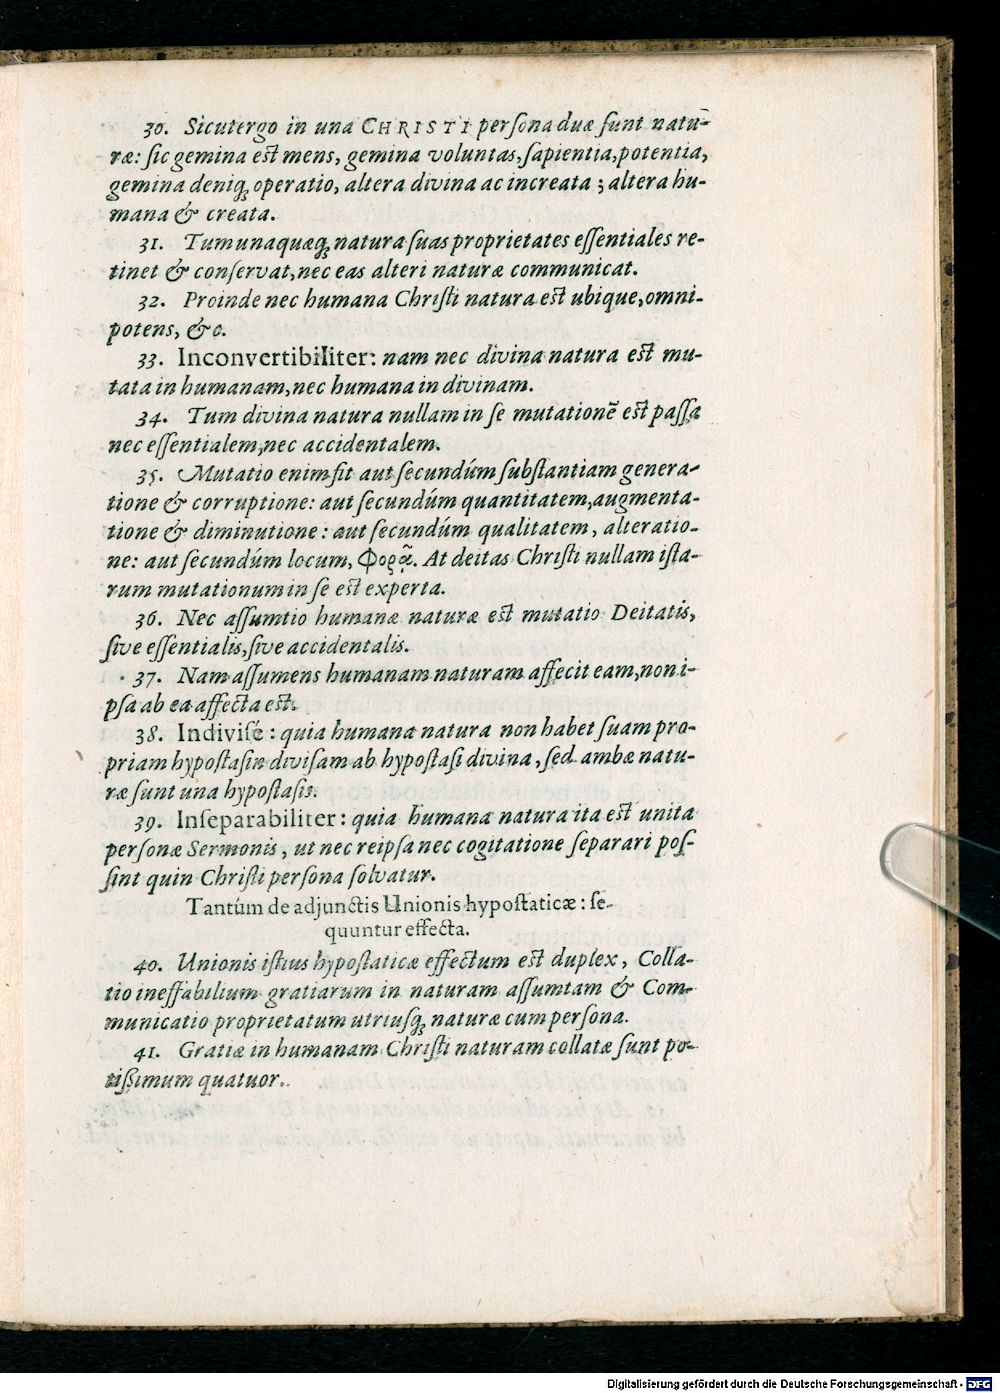 30. Sicut ergo in una CHRISTI persona duæ sunt natū-
ræ: sic gemina est mens, gemina voluntas, sapientia, potentia,
gemina deniq; operatio, altera divina ac increata ; altera hu-
mana & creata.
31. Tum unaquæq; natura suas proprietates essentiales re-
tinet & conservat, nec eas alteri naturæ communicat.
32. Proinde nec humana Christi natura est ubique, omni-
potens, &c.
33. Inconvertibiliter: nam nec divina natura est mu-
tata in humanam, nec humana in divinam.
34. Tum divina natura nullam in se mutationē est passa
nec essentialem, nec accidentalem.
35. Mutatio enim fit aut secundúm substantiam genera-
tione & corruptione: aut secundúm quantitatem, augmenta-
tione & diminutione: aut secundúm qualitatem, alteratio-
ne: aut secundúm locum, φορᾷ. At deitas Christi nullam ista-
rum mutationum in se est experta.
36. Nec assumtio humanæ naturæ est mutatio Deitatis,
sive essentialis, sive accidentalis.
37. Nam assumens humanam naturam affecit eam, non i-
psa ab ea affecta est.
38. Indivisé: quia humana natura non habet suam pro-
priam hypostasin divisam ab hypostasi divina, sed ambæ natu-
ræ sunt una hypostasis.
39. Inseparabiliter: quia humana natura ita est unita
personæ Sermonis, ut nec reipsa nec cogitatione separari pos-
sint quin Christi persona solvatur.
Tantúm de adjunctis Unionis hypostaticæ: se-
quuntur effecta.
40. Unionis istius hypostaticæ effectum est duplex, Colla-
tio ineffabilium gratiarum in naturam assumtam & Com-
municatio proprietatum utriusq; naturæ cum persona.
41. Gratiæ in humanam Christi naturam collatæ sunt po-
tissimum quatuor.
Digitalisierung gefördert durch die Deutsche Forschungsgemeinschaft - DFG